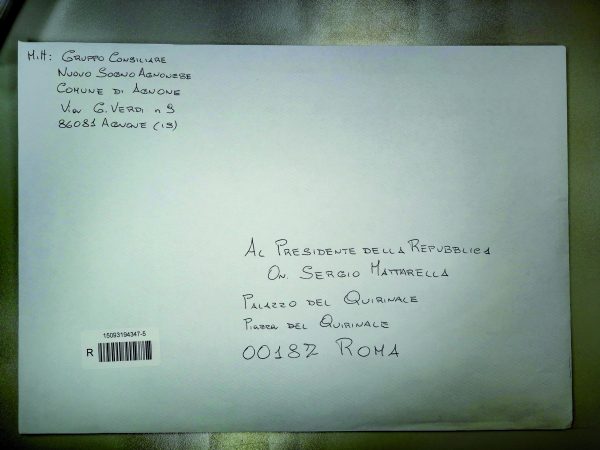 Mitt: Gruppo Consiliare
Nuovo Sogno Agnonese
Comune di Agnone
Via G. Verdi n 9
86081 Agnone (IS)
Al Presidente della Repubblica
On. Sergio Mattarella
Palazzo del Quirinale
Piazza del Quirinale
00187 Roma
15093194347-5
R